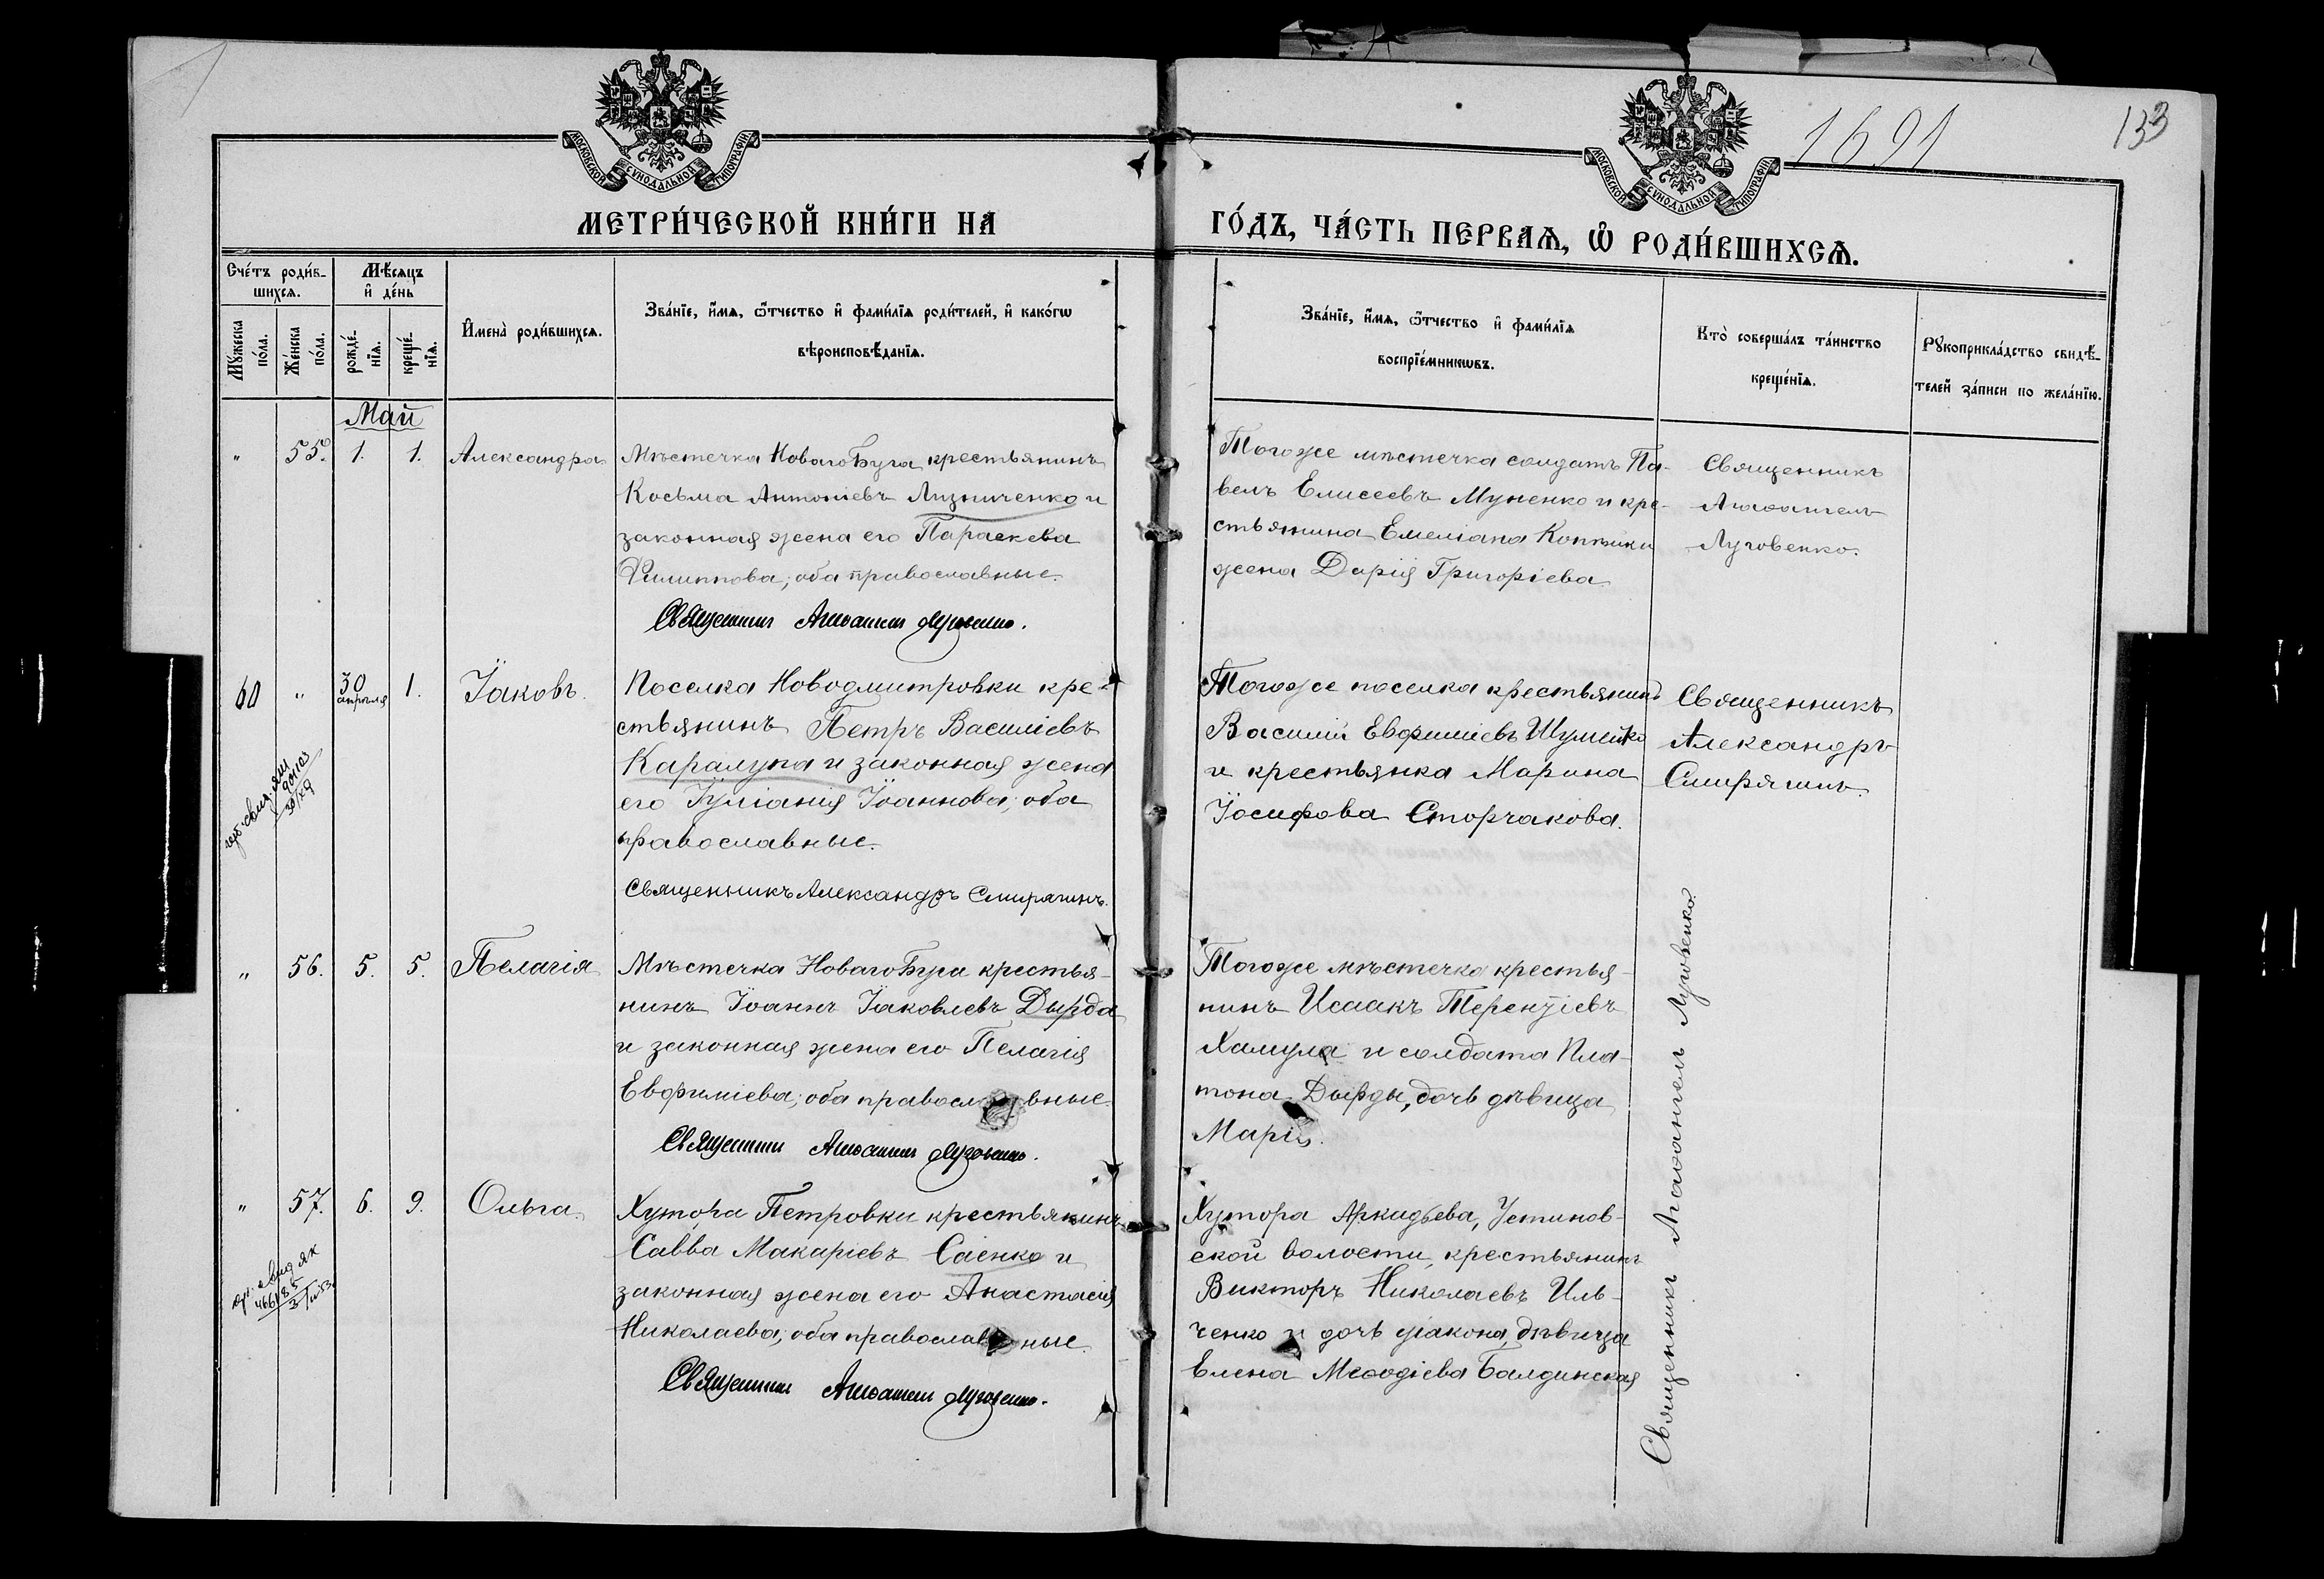 1691
133
МОСКОВСКОЙ СѴНОДАЛЬНОЙ ТИПОГРАФІИ
МОСКОВСКОЙ СѴНОДАЛЬНОЙ ТИПОГРАФІИ
МЕТРИ́ЧЕСКОЙ КНИ́ГИ НА
ГО́ДЪ, ЧА́СТЬ ПЕ́РВАѦ, Ѡ҆ РОДИ́ВШИХСѦ.
Сче́тъ роди́в-
шихсѧ.
Мѣ́сѧцъ
и҆ де́нь
Мꙋ́жеска
по́ла.
Же́нска
по́ла.
рожде́-
нїѧ.
креще́-
нїѧ.
И҆мена̀ роди́вшихсѧ.
Зва́нїе, и҆́мѧ, ѻ҆́тчество и҆ фами́лїѧ роди́телей, и҆ како́гѡ
вѣроисповѣ́данїѧ.
Зва́нїе, и҆́мѧ, ѻ҆́тчество и҆ фами́лїѧ
воспрїе́мникѡвъ.
Кто̀ соверша́лъ та́инство
креще́нїѧ.
Рꙋкоприкла́дство свидѣ́-
телей за́писи по жела́нїю.
Май
" 55. 1. 1. Александра
Мѣстечка Новаго Буга крестьянинъ
Косьма Антоніевъ Лизниченко и
законная жена его Параскева
Филиппова; оба православные.
Священникъ Агаѳангелъ Луговенко.
Того же мѣстечка солдатъ Па-
велъ Елисеевъ Муненко и кре-
стьянина Емеліана
жена Дарія Григоріева.
Священникъ
Агаѳангелъ
Луговенко.
60 " 30 апрѣля 1. Іаковъ.
Поселка Новодмитровки кре-
стьянинъ Петръ Василіевъ
Каралупа и законная жена
его Іуліанія Іоаннова; оба
православные.
Священникъ Александръ Смирягинъ.
Того же поселка крестьянинъ
Василій Евфиміевъ Шумейко
и крестьянка Марина
Іосифова Сторчакова.
Священникъ
Александръ
Смирягинъ.
" 56. 5. 5. Пелагія
Мѣстечка Новаго Буга крестья-
нинъ Іоаннъ Іаковлевъ Дырда
и законная жена его Пелагія
Евфиміева; оба православные.
Священникъ Агаѳангелъ Луговенко.
Того же мѣстечка крестья-
нинъ Исаакъ Терентіевъ
Хамула и солдата Пла-
тона Дырды, дочь дѣвица
Марія.
" 57. 6. 9. Ольга.
Хутора Петровки крестьянинъ
Савва Макаріевъ Саенко и
законная жена его Анастасія
Николаева; оба православные.
Священникъ Агаѳангелъ Луговенко.
Хутора Аркадьева, Устинов-
ской волости, крестьянинъ
Викторъ Николаевъ Иль-
ченко и дочь діакона, дѣвица
Елена Меѳодіева Балдинская
Священникъ Агаѳангелъ Луговенко.